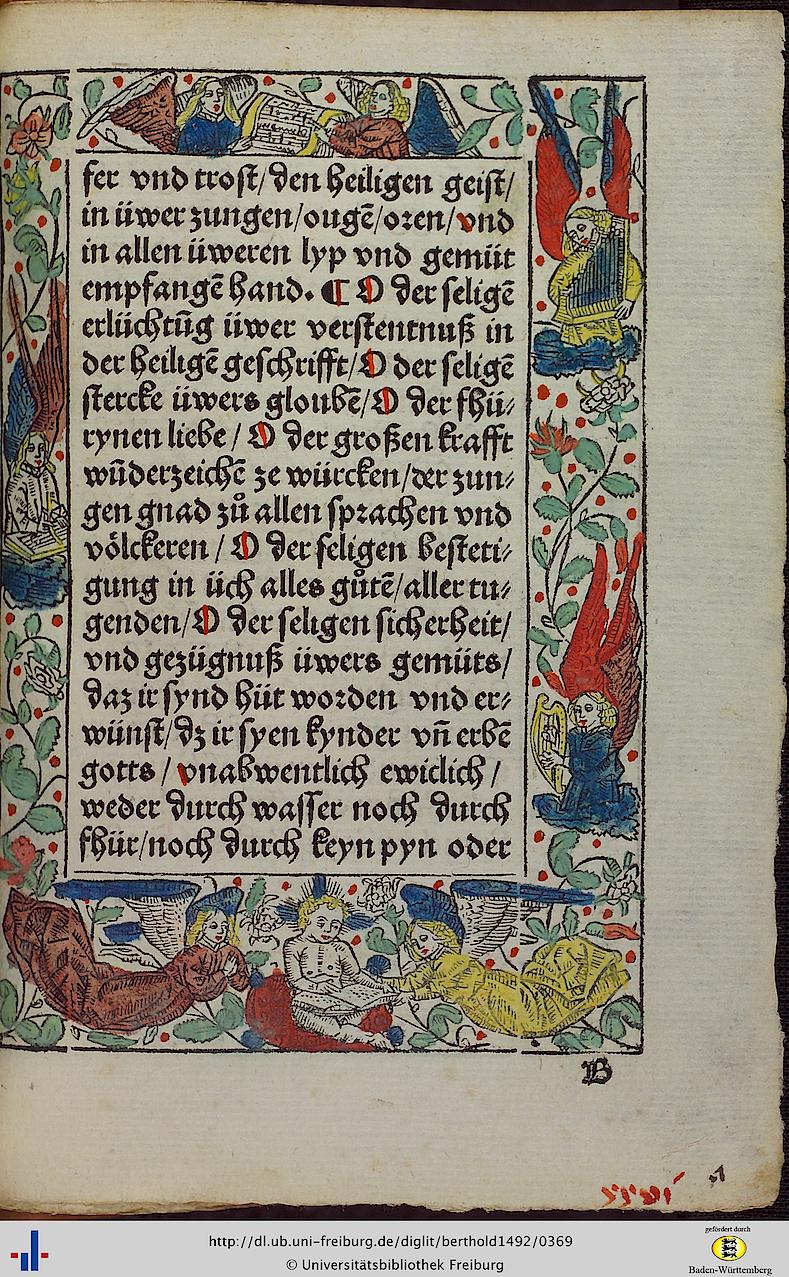 fer vnd trost/ den heiligen geist/
in üwer zungen/ougē/oren/vnd
in allen üweren lyp vnd gemüt
empfangē hand. ¶ O der seligē
erlüchtūg üwer verstentnuß in
der heiligē geschrifft/O der seligē
stercke üwers gloubē/O der fhü⸗
rynen liebe / O der großen krafft
wūderzeichē ze würcken/der zun⸗
gen gnad zů allen sprachen vnd
völckeren / O der seligen besteti⸗
gung in üch alles gůtē/aller tu⸗
genden/O der seligen sicherheit/
vnd gezügnuß üwers gemüts/
daz ir synd hüt worden vnd er⸗
wünst/dz ir syen kynder vn̄ erbē
gotts / vnabwentlich ewiclich /
weder durch wasser noch durch
fhür/noch durch keyn pyn oder
B
http://dl.ub.uni-freiburg.de/diglit/berthold1492/0369
© Universitätsbibliothek Freiburg
gefördert durch
Baden-Württemberg